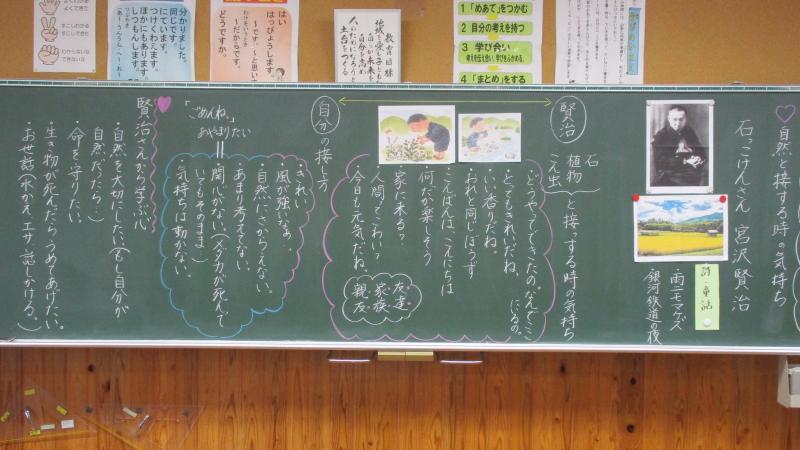 自然と接する時の気持ち
石っこけんさん 宮沢賢治
詩・童話
・雨ニモマケズ
銀河鉄道の夜
賢治
石
植物
こん虫
と接する時の気持ち
・どうやってできたの。なんでここにいるの。
・とってもきれいだね。
・いい香りだね。
・おれと同じぼうず
・こんばんは、こんにちは
・何だか楽しそう
・家に来る？
・人間ってこわい？
・今日も元気だね。
友達
家族
親友
自分の接し方
・きれい
・風が強いな。
・自然にさからえない。
・あまり考えてない。
・関心がない。(メダカが死んでいてもそのまま)
・気持ちは動かない。
「ごめんね。」
あやまりたい
賢治さんから学ぶ心
・自然を大切にしたい(もし自分が自然だったら？)
・命を守りたい。
・生き物が死んだらうめてあげたい。
・お世話(水かえ、エサ、話しかける。)
教育目標
地域を愛し
土台をつくる
1「めあて」をつかむ
2 自分の考えを持つ
3 学び合い
考えを伝え合い、学びをふかめる。
4「まとめ」をする
はい
はっぴょうします。
〜です。
〜と思います
わけをいうとき
〜だからです。
どうですか。
分かりました。
同じです。
にています。
つけくわえます。
ほかにもあります。
しつもんします。
よくわかる
よくできた
わかる
できた
わからない
できない